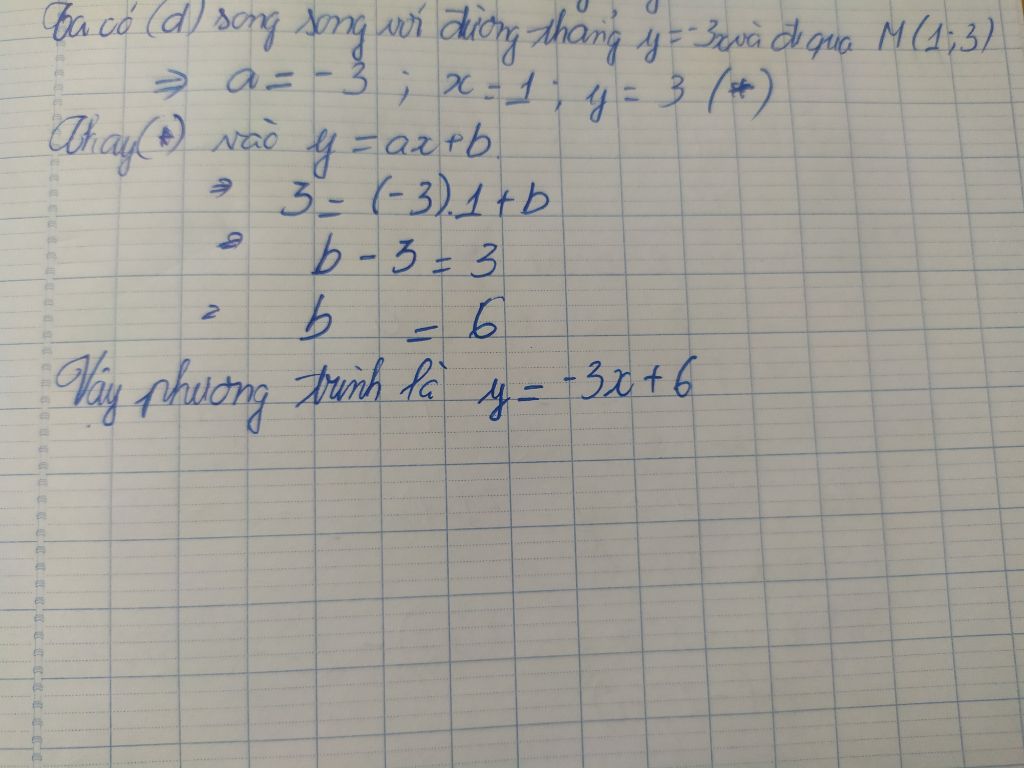 Ta có (d) song song với đường thẳng y = -3x và đi qua M (1; 3)
⇒ a = -3 ; x = 1 ; y = 3 (*)
Thay (*) vào y = ax + b
⇒ 3 = (-3).1 + b
⇒ b - 3 = 3
b = 6
Vậy phương trình là y = -3x + 6